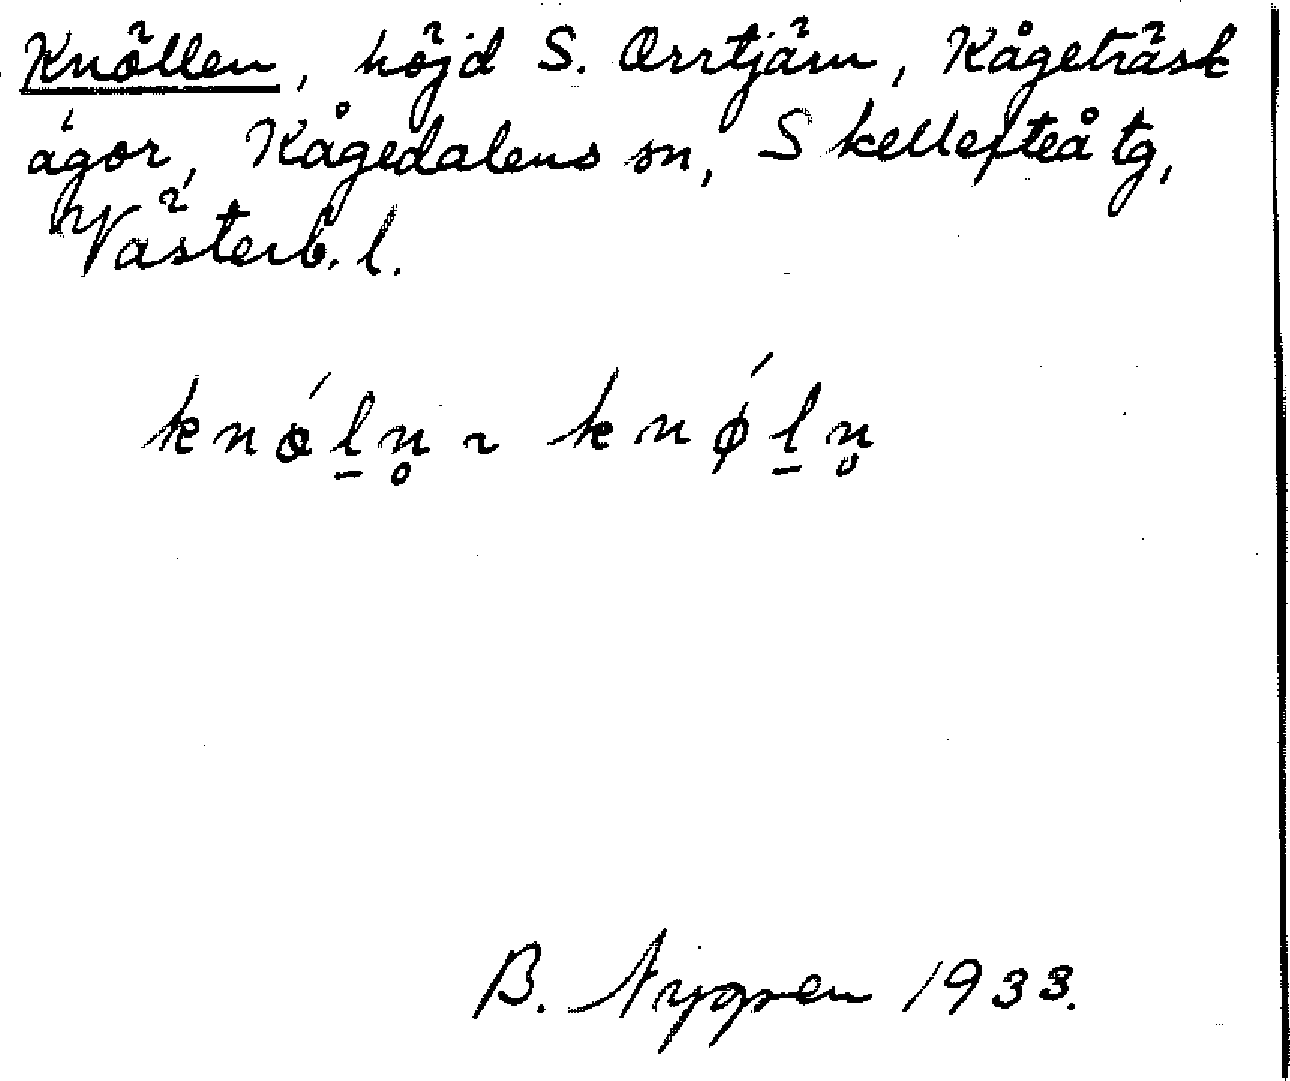 Knöllen, höjd S. Orrtjärn, Kågeträsk
ägor, Kågedalens sn, Skellefteå tg,
Västerb. l.
knö́l̲n̥ ~ knǿl̲n̥
B. Nygren 1933.